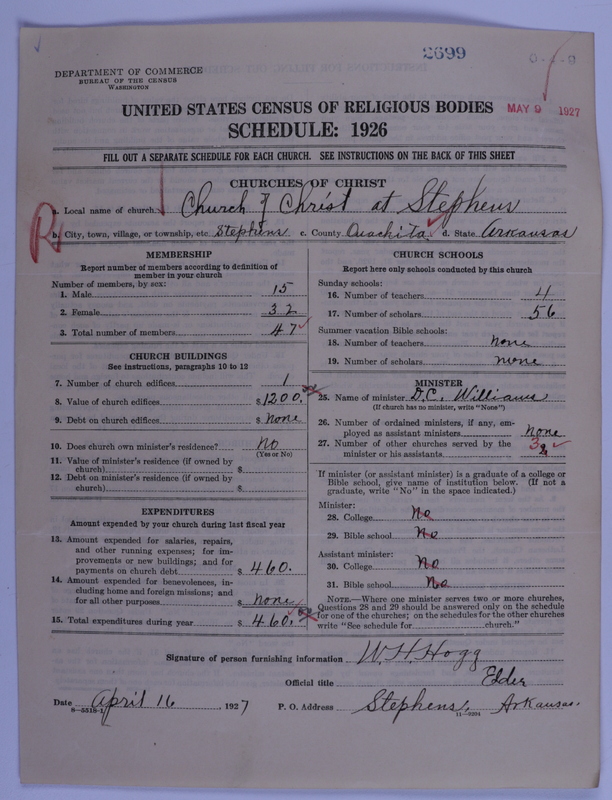 2699
DEPARTMENT OF COMMERCE
BUREAU OF THE CENSUS
WASHINGTON
UNITED STATES CENSUS OF RELIGIOUS BODIES
MAY 9 1927
SCHEDULE: 1926
FILL OUT A SEPARATE SCHEDULE FOR EACH CHURCH. SEE INSTRUCTIONS ON THE BACK OF THIS SHEET
CHURCHES OF CHRIST
a. Local name of church. Church of Christ at Stephens
b. City, town, village, or township, etc. Stephens c. County Ouachita d. State Arkansas
MEMBERSHIP
Report number of members according to definition of
member in your church
Number of members, by sex:
1. Male 15
2. Female 32
3. Total number of members 47
CHURCH BUILDINGS
See instructions, paragraphs 10 to 12
7. Number of church edifices 1
8. Value of church edifices $1200.
9. Debt on church edifices $ None
10. Does church own minister's residence? No
(Yes or No)
11. Value of minister's residence (if owned by
church) $
12. Debt on minister's residence (if owned by
church) $
EXPENDITURES
Amount expended by your church during last fiscal year
13. Amount expended for salaries, repairs,
and other running expenses; for im-
provements or new buildings; and for
payments on church debt $ 460.
14. Amount expended for benevolences, in-
cluding home and foreign missions; and
for all other purposes $ None
15. Total expenditures during year $ 460.
CHURCH SCHOOLS
Report here only schools conducted by this church
Sunday schools:
16. Number of teachers 4
17. Number of scholars 56
Summer vacation Bible schools:
18. Number of teachers none
19. Number of scholars none
MINISTER
25. Name of minister D.C. Williams
(If church has no minister, write "None")
26. Number of ordained ministers, if any, em-
ployed as assistant ministers none
27. Number of other churches served by the
minister or his assistants 3
If minister (or assistant minister) is a graduate of a college or
Bible school, give name of institution below. (If not a
graduate, write "No" in the space indicated.)
Minister:
28. College No
29. Bible school No
Assistant minister:
30. College No
31. Bible school No
NOTE.—Where one minister serves two or more churches,
Questions 28 and 29 should be answered only on the schedule
for one of the churches; on the schedules for the other churches
write "See schedule for church."
Signature of person furnishing information W.H. Hogg
Official title Elder
Date April 16, 1927 P. O. Address Stephens, Arkansas.
8-5518-1 11-9204